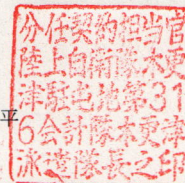 分任契約担当官
陸上自衛隊木更
津駐屯地第31
6会計隊木更津
派遣隊長之印
平